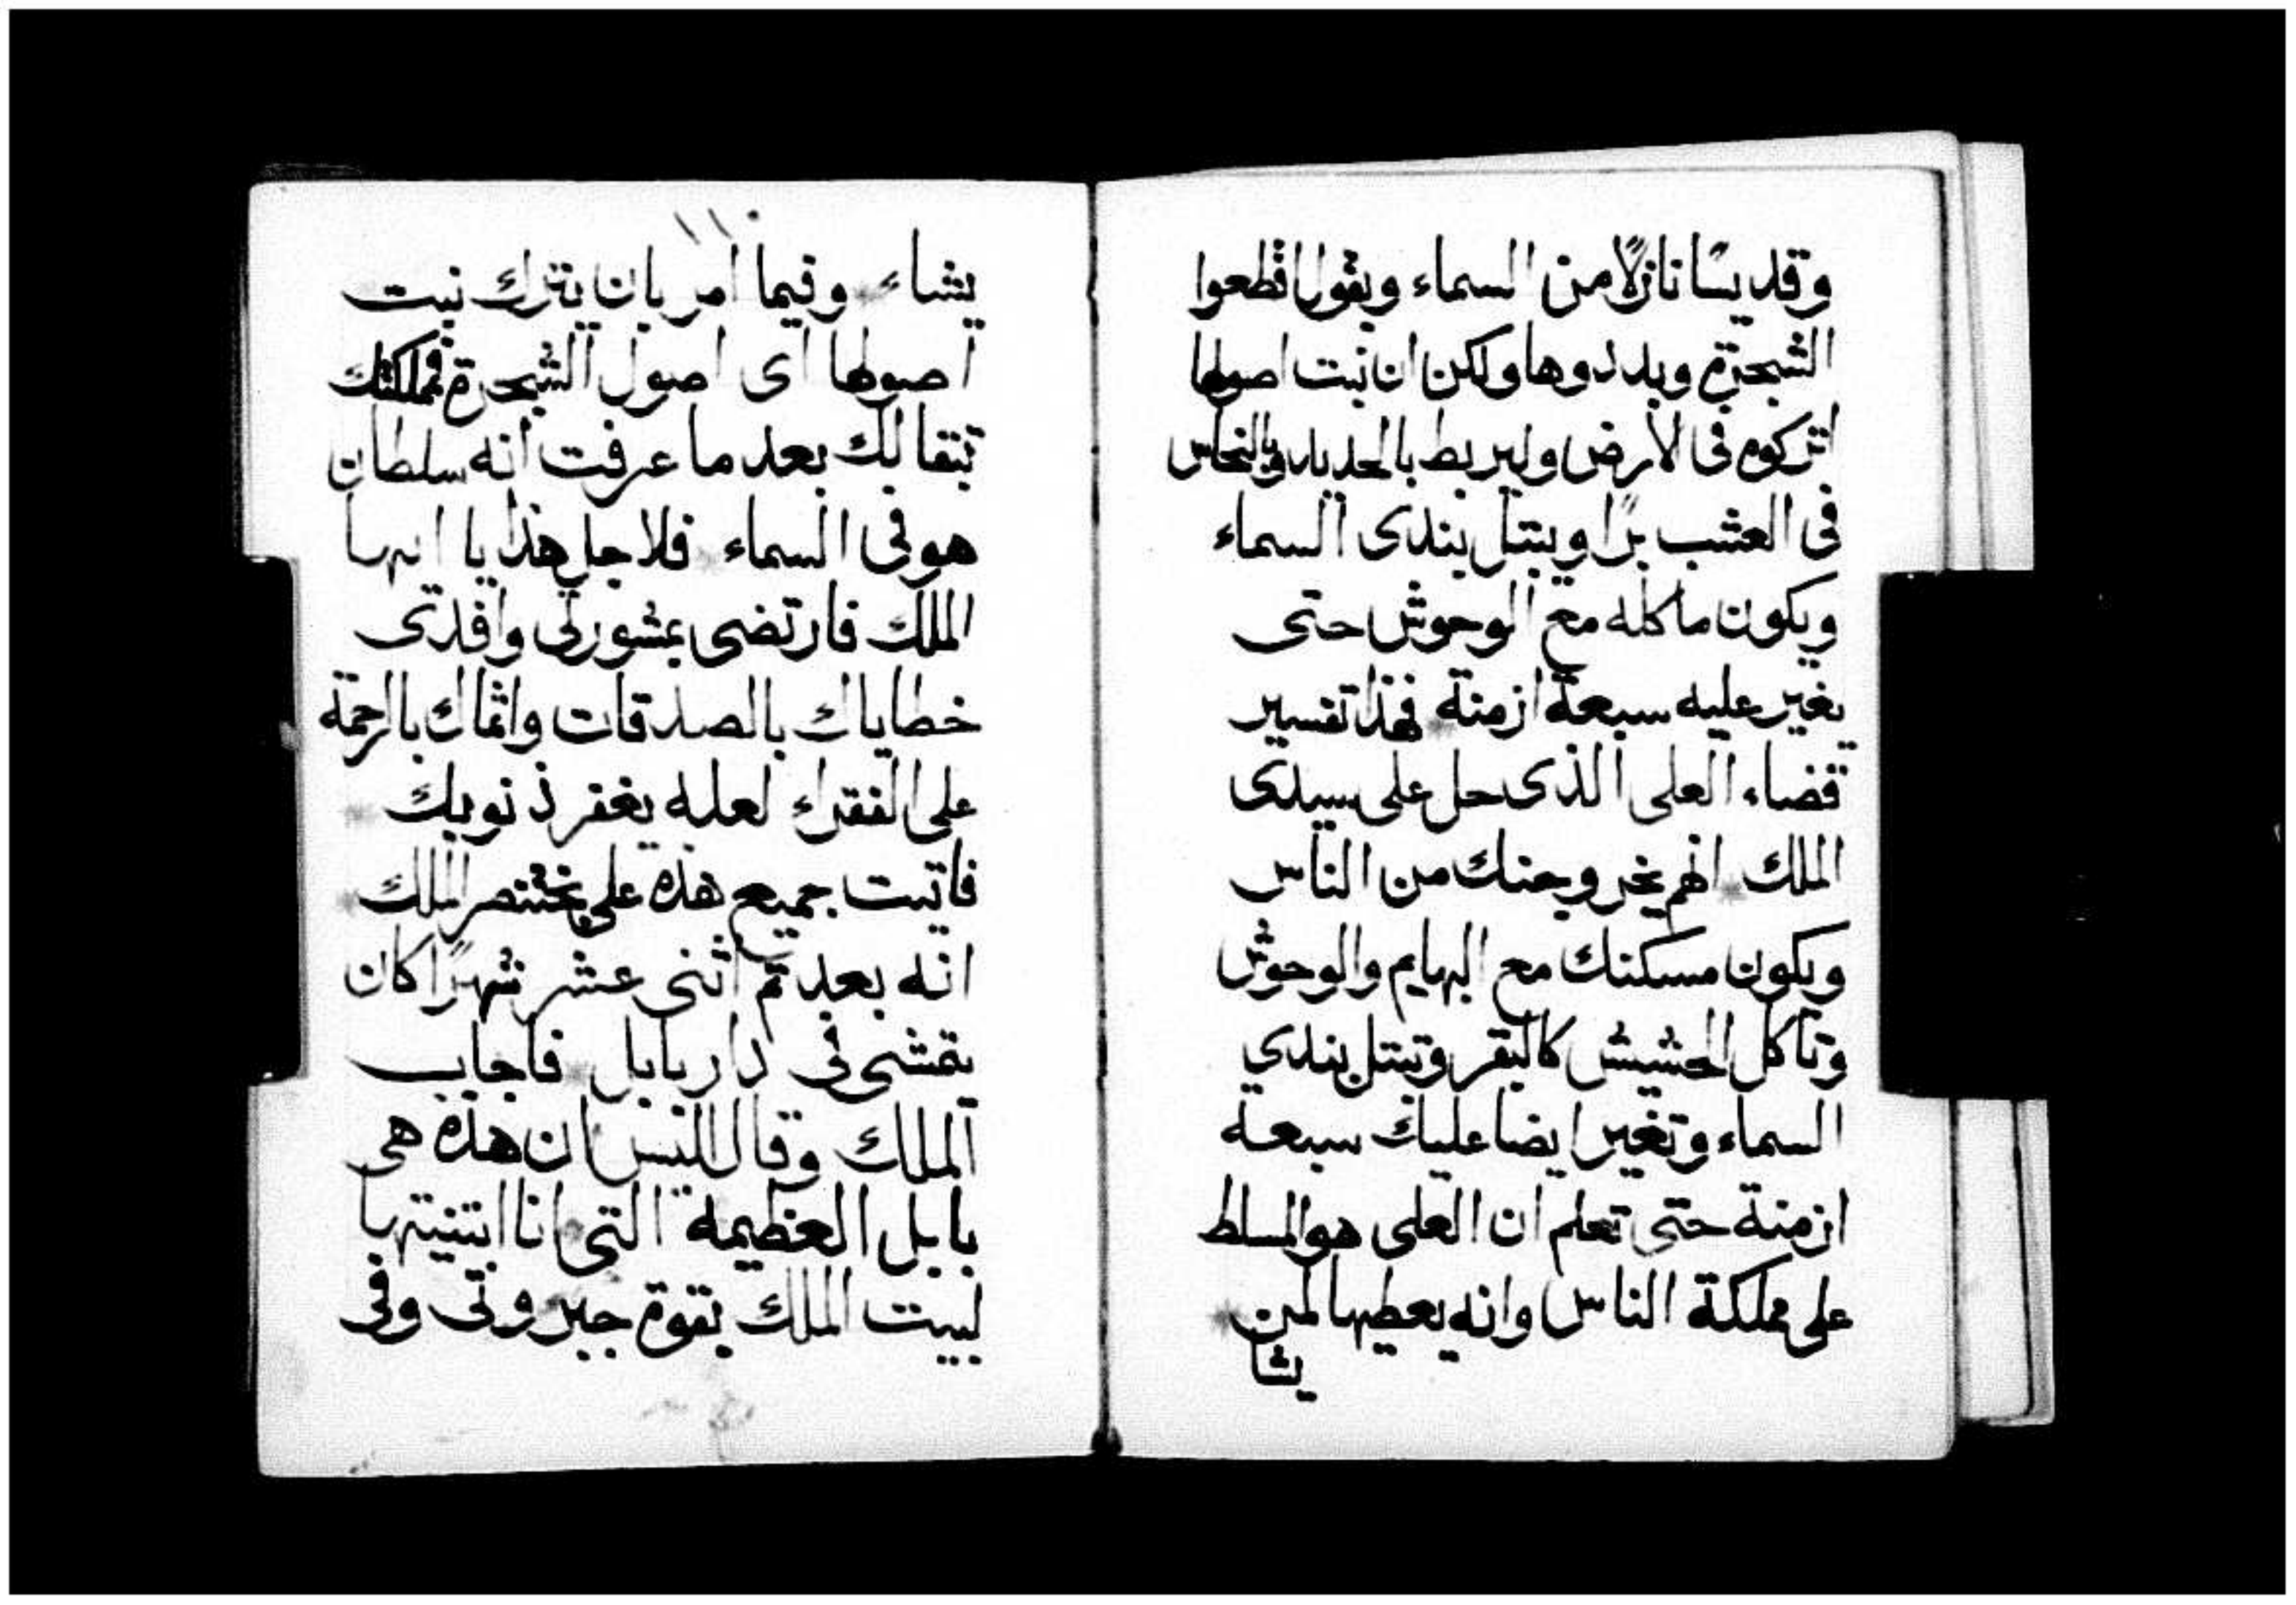 وقديسًا نازلًا من السماء ويقول اقطعوا
الشجرة وبددوها ولكن ان نبت اصولها
اتركوه في الارض وليربط بالحديد وبالنحاس
في العشب برًا ويبتل بندى السماء
ويكون ماكله مع الوحوش حتى
يغير عليه سبعة ازمنة فهذا تفسير
قضاء العلى الذى حل على سيدى
الملك انهم يخروجنك من الناس
ويكون مسكنك مع البهايم والوحوش
وتاكل الحشيش كالبقر وتبتل بندي
السماء وتغير ايضا عليك سبعة
ازمنة حتى تعلم ان العلى هو المسلط
على مملكة الناس وانه يعطيها لمن
يشا
١١٠
يشاء وفيما امر بان يترك نبت
اصولها اى اصول الشجرة فمملكتك
تبقا لك بعد ما عرفت انه سلطان
هو في السماء فلاجل هذا يا ايها
الملك فارتضى بمشورتي وافدى
خطاياك بالصدقات واثمك بالرحمة
على الفقراء لعله يغفر ذنوبك
فاتيت جميع هذه على بختنصر الملك
انه بعد تم اثنى عشر شهرًا كان
يتمشى في دار بابل فاجاب
الملك وقال اليس ان هذه هى
بابل العظيمة التى انا ابتنيتها
لبيت الملك بقوة جبروتى وفى